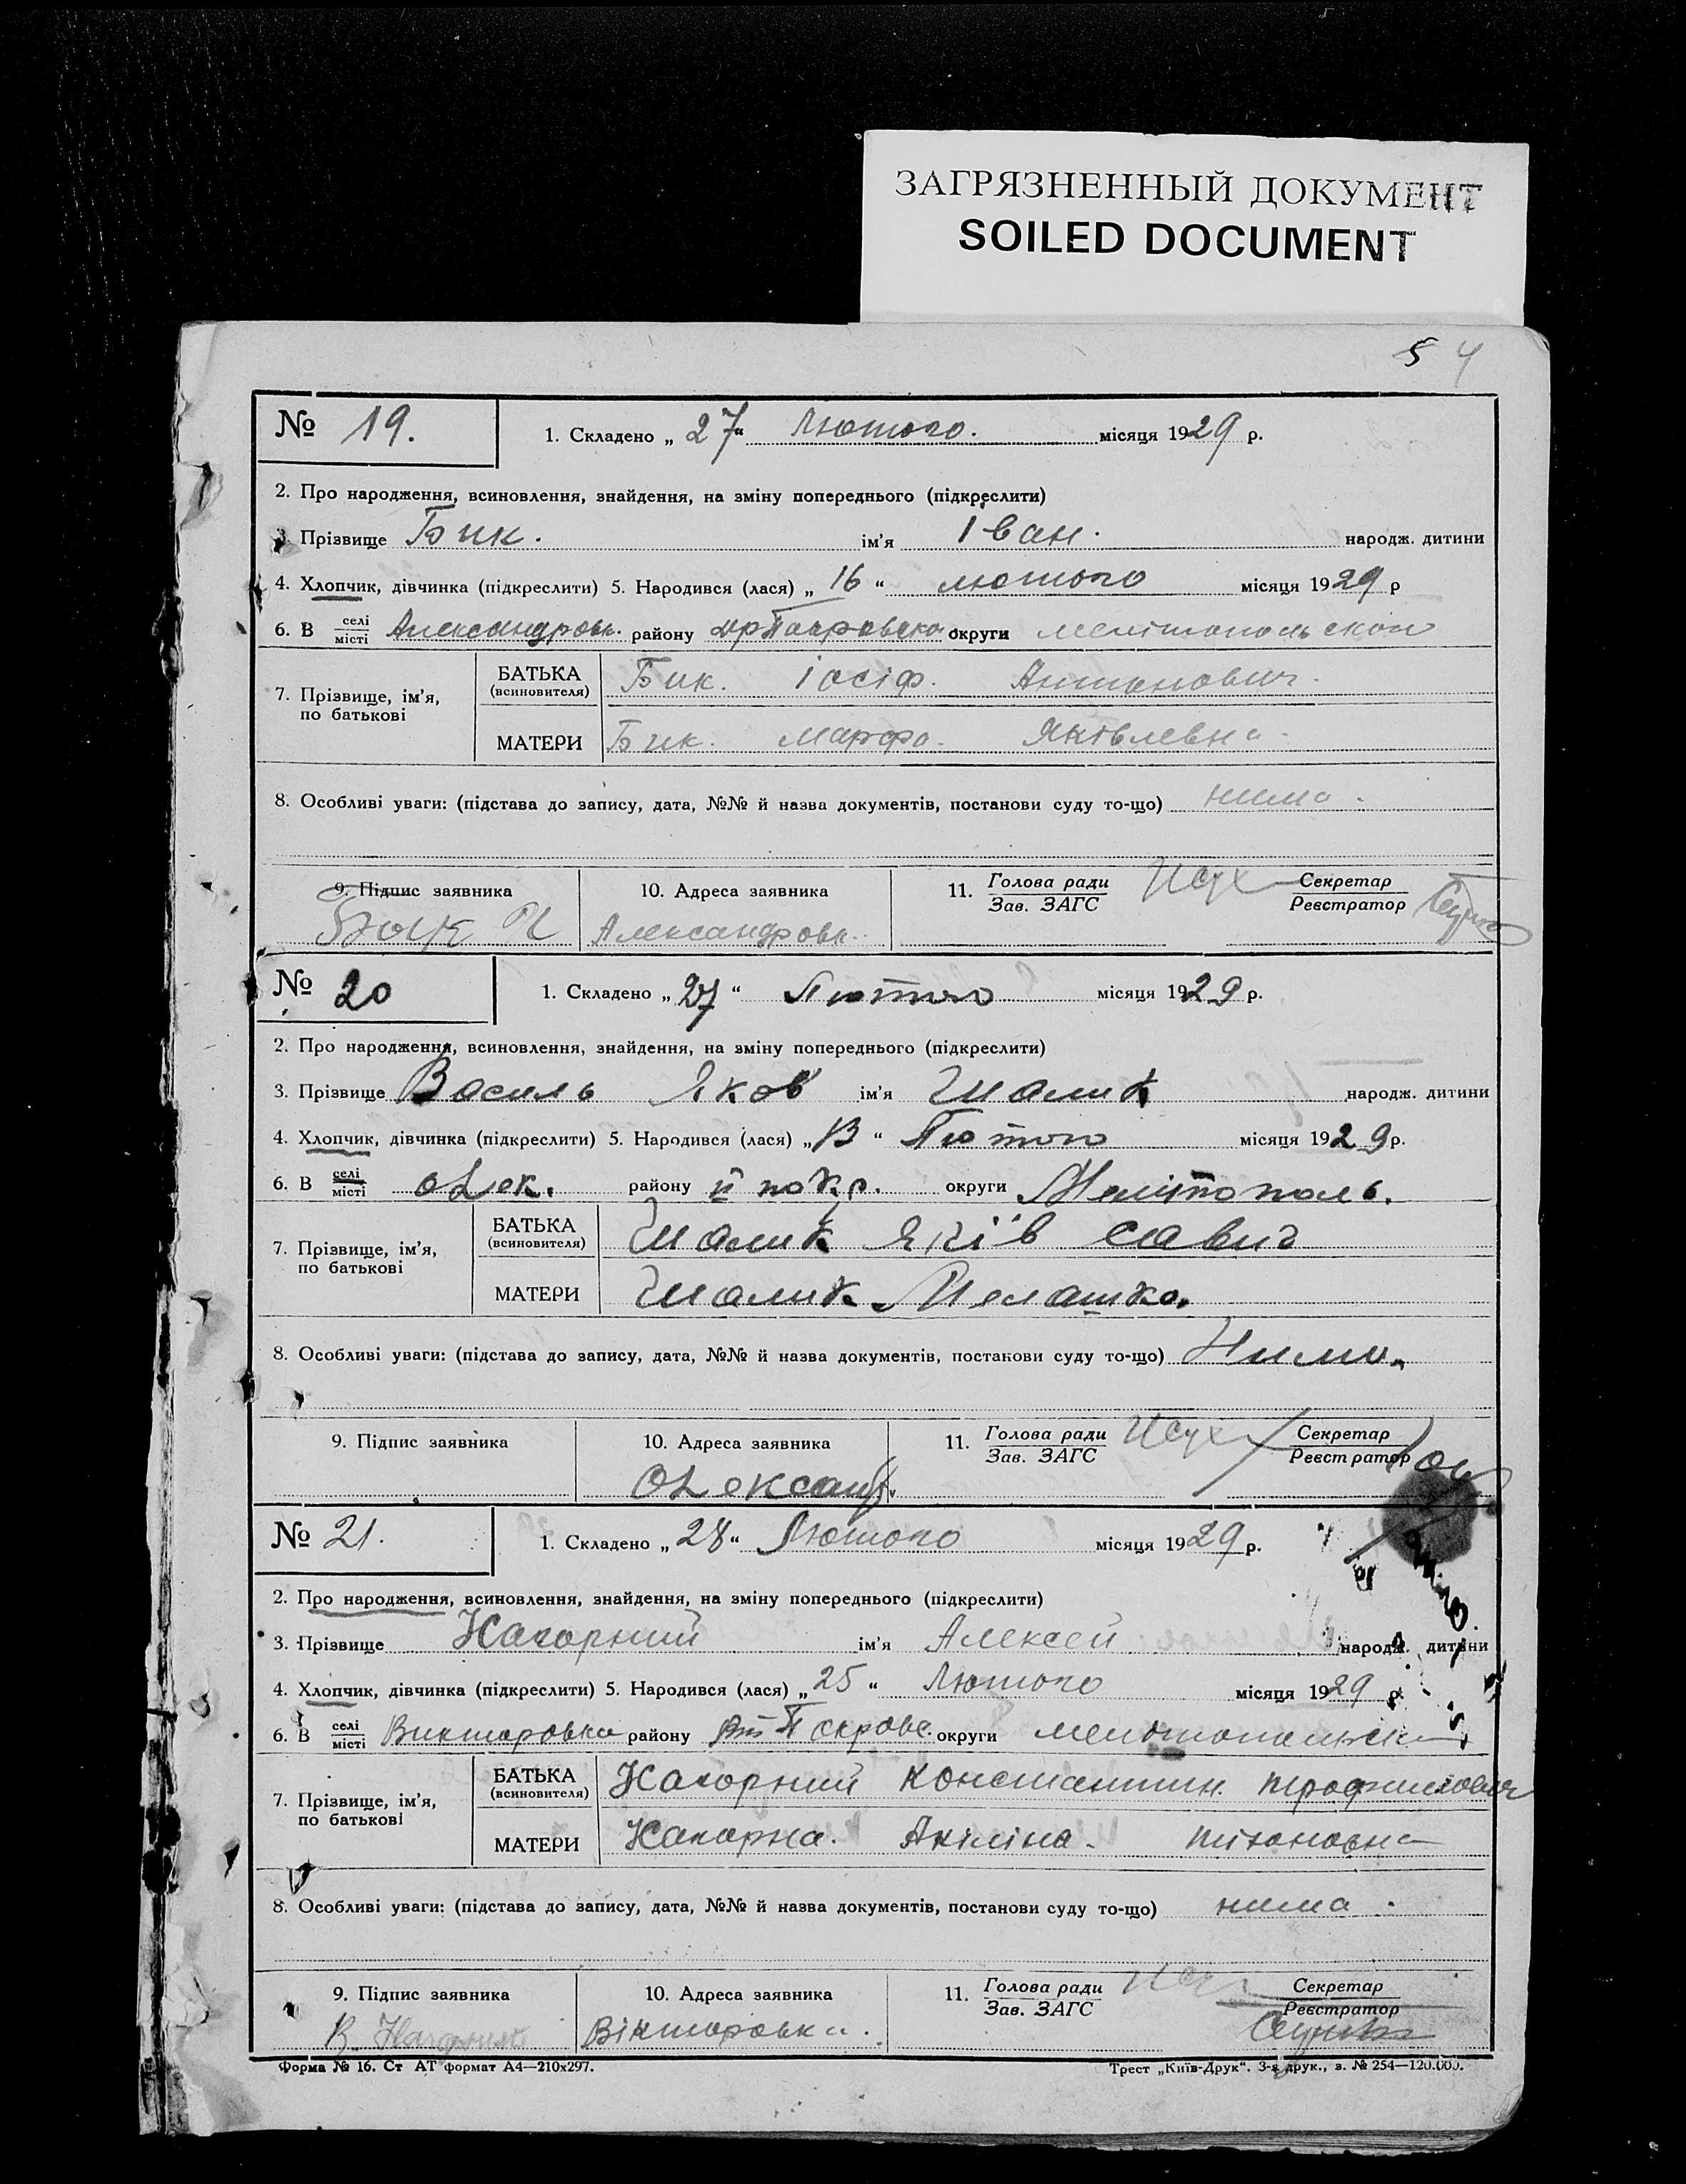 ЗАГРЯЗНЕННЫЙ ДОКУМЕНТ
SOILED DOCUMENT
5 4
№ 19. 1. Складено „ 27 “ Лютого. місяця 1929 р.
2. Про народження, всиновлення, знайдення, на зміну попереднього (підкреслити)
3. Прізвище Бик. ім'я Іван. народж. дитини
4. Хлопчик, дівчинка (підкреслити) 5. Народився (лася) „ 16 “ лютого місяця 1929 р
6. В селі місті Александровк. району округи
7. Прізвище, ім'я, по батькові
БАТЬКА (всиновителя) Бик. Іосіф. Антонович.
МАТЕРИ Бик. Марфа. Яківлевна.
8. Особливі уваги: (підстава до запису, дата, №№ й назва документів, постанови суду то-що) нима.
9. Підпис заявника 10. Адреса заявника 11. Голова ради Зав. ЗАГС Секретар Реєстратор
Александровк.
№ 20 1. Складено „ 27 “ Лютого місяця 1929 р.
2. Про народження, всиновлення, знайдення, на зміну попереднього (підкреслити)
3. Прізвище Василь Яков ім'я Шалик народж. дитини
4. Хлопчик, дівчинка (підкреслити) 5. Народився (лася) „ 13 “ Лютого місяця 1929 р.
6. В селі місті Олек. району н покр. округи Мелітополь.
7. Прізвище, ім'я, по батькові
БАТЬКА (всиновителя) Шалик Яків Савич
МАТЕРИ Шалик Мелашка.
8. Особливі уваги: (підстава до запису, дата, №№ й назва документів, постанови суду то-що) Нима.
9. Підпис заявника 10. Адреса заявника 11. Голова ради Зав. ЗАГС Секретар Реєстратор
Олександ.
№ 21. 1. Складено „ 28 “ Лютого місяця 1929 р.
2. Про народження, всиновлення, знайдення, на зміну попереднього (підкреслити)
3. Прізвище Нагорний ім'я Алексей народж. дитини
4. Хлопчик, дівчинка (підкреслити) 5. Народився (лася) „ 25 “ Лютого місяця 1929 р.
6. В селі місті Викторовка району округи
7. Прізвище, ім'я, по батькові
БАТЬКА (всиновителя) Нагорний Константин. Трофимович
МАТЕРИ Нагорна. Акіліна.
8. Особливі уваги: (підстава до запису, дата, №№ й назва документів, постанови суду то-що) нима.
9. Підпис заявника 10. Адреса заявника 11. Голова ради Зав. ЗАГС Секретар Реєстратор
Вікторовка.
Форма № 16. Ст АТ формат А4—210х297. Трест „Київ-Друк“. 3-я друк., з. № 254—120.000.